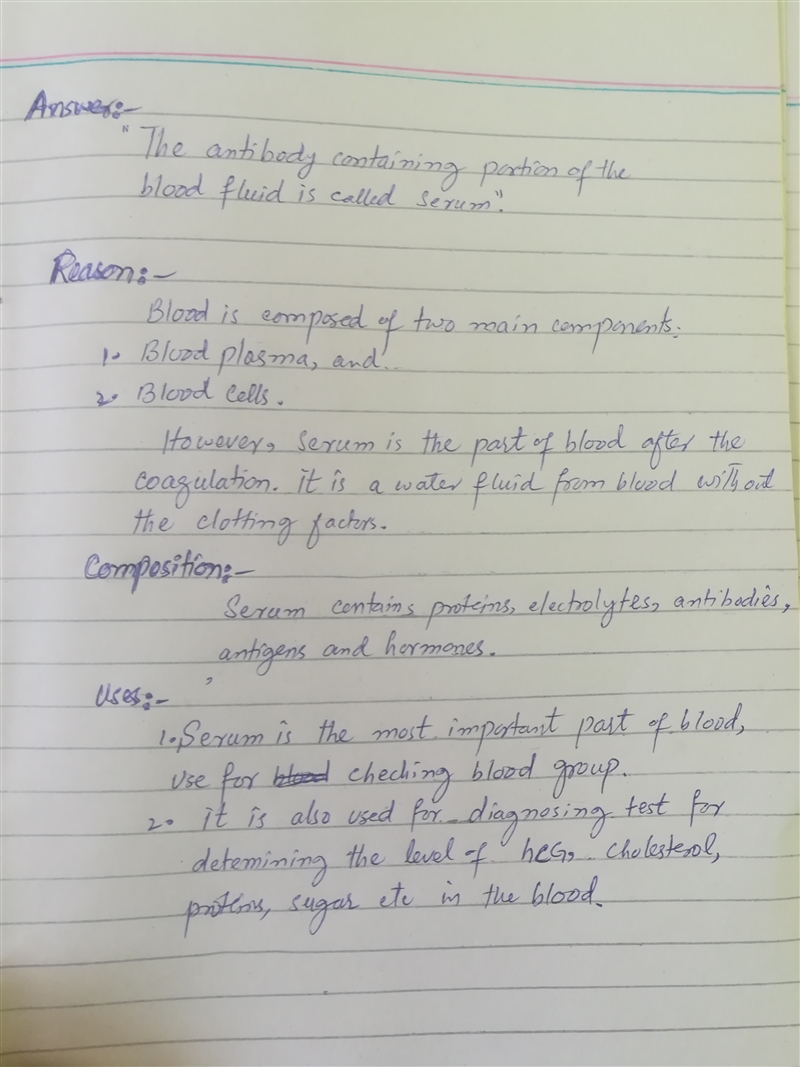 Answer:-
"The antibody containing portion of the
blood fluid is called serum".
Reason:-
Blood is composed of two main components.
1. Blood plasma, and
2. Blood cells.
However, serum is the part of blood after the
coagulation. it is a water fluid from blood without
the clotting factors.
Composition:-
Serum contains proteins, electrolytes, antibodies,
antigens and hormones.
Uses:-
1. Serum is the most important part of blood,
use for blood checking blood group.
2. it is also used for diagnosing test for
detemining the level of hCG, cholesterol,
protins, sugar etc in the blood.